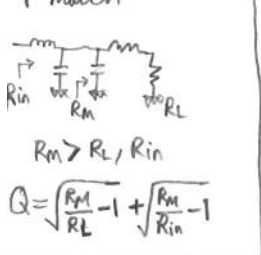 Rin
RM
RL
RM > RL, Rin
Q = √(RM/RL - 1) + √(RM/Rin - 1)